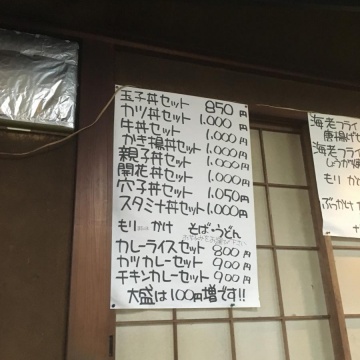 玉子丼セット 850円
カツ丼セット 1,000円
牛丼セット 1,000円
かき揚丼セット 1,000円
親子丼セット 1,000円
開花丼セット 1,000円
穴子丼セット 1,050円
スタミナ丼セット 1,000円
もり かけ そば・うどん
カレーライスセット 800円
カツカレーセット 900円
チキンカレーセット 900円
大盛は100円増です!!
海老フライ
唐揚げセ
海老フライ
しょうが焼
もり か
ぶっかけ